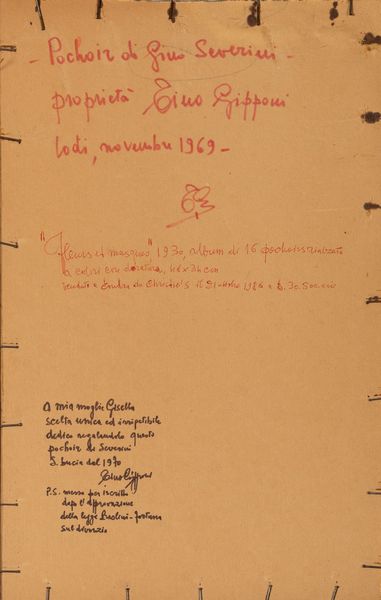 - Pochoir di Gino Severini -
proprietà Tino Gipponi
Lodi, novembre 1969 -
"Fleurs et masques", 1930, album di 16 pochoirs realizzato
a colori con doratura, cm
venduto a Londra da Christie's il 1986 a
A mia moglie Gisella
scelta unica ed irripetibile
dedico regalandolo questo
pochoir di Severini
S. Lucia del 1970
Tino Gipponi
P.S. messo per iscritto
dopo l'approvazione
della legge Baslini-Fortuna
sul divorzio